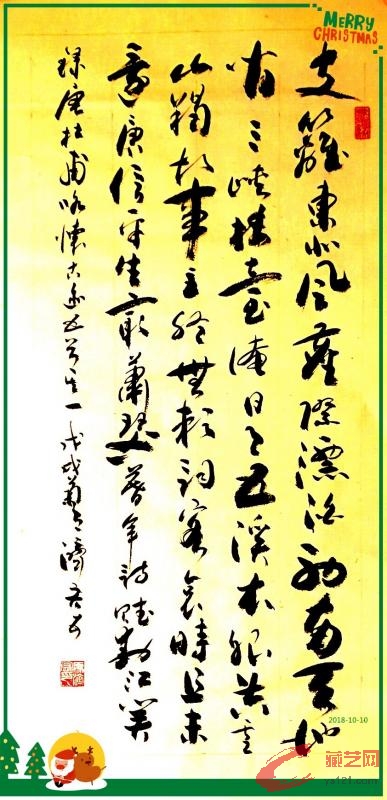 MERRY
CHRISTMAS
支籬東北風塵際漂泊西南天地
間三峽樓臺淹日月五溪衣服共雲
山羯胡事主終無賴詞客哀時且未
還庾信平生最蕭瑟暮年詩賦動江關
録唐杜甫咏懷古迹五首其一戊戌菊月濤
2018-10-10
藏艺网